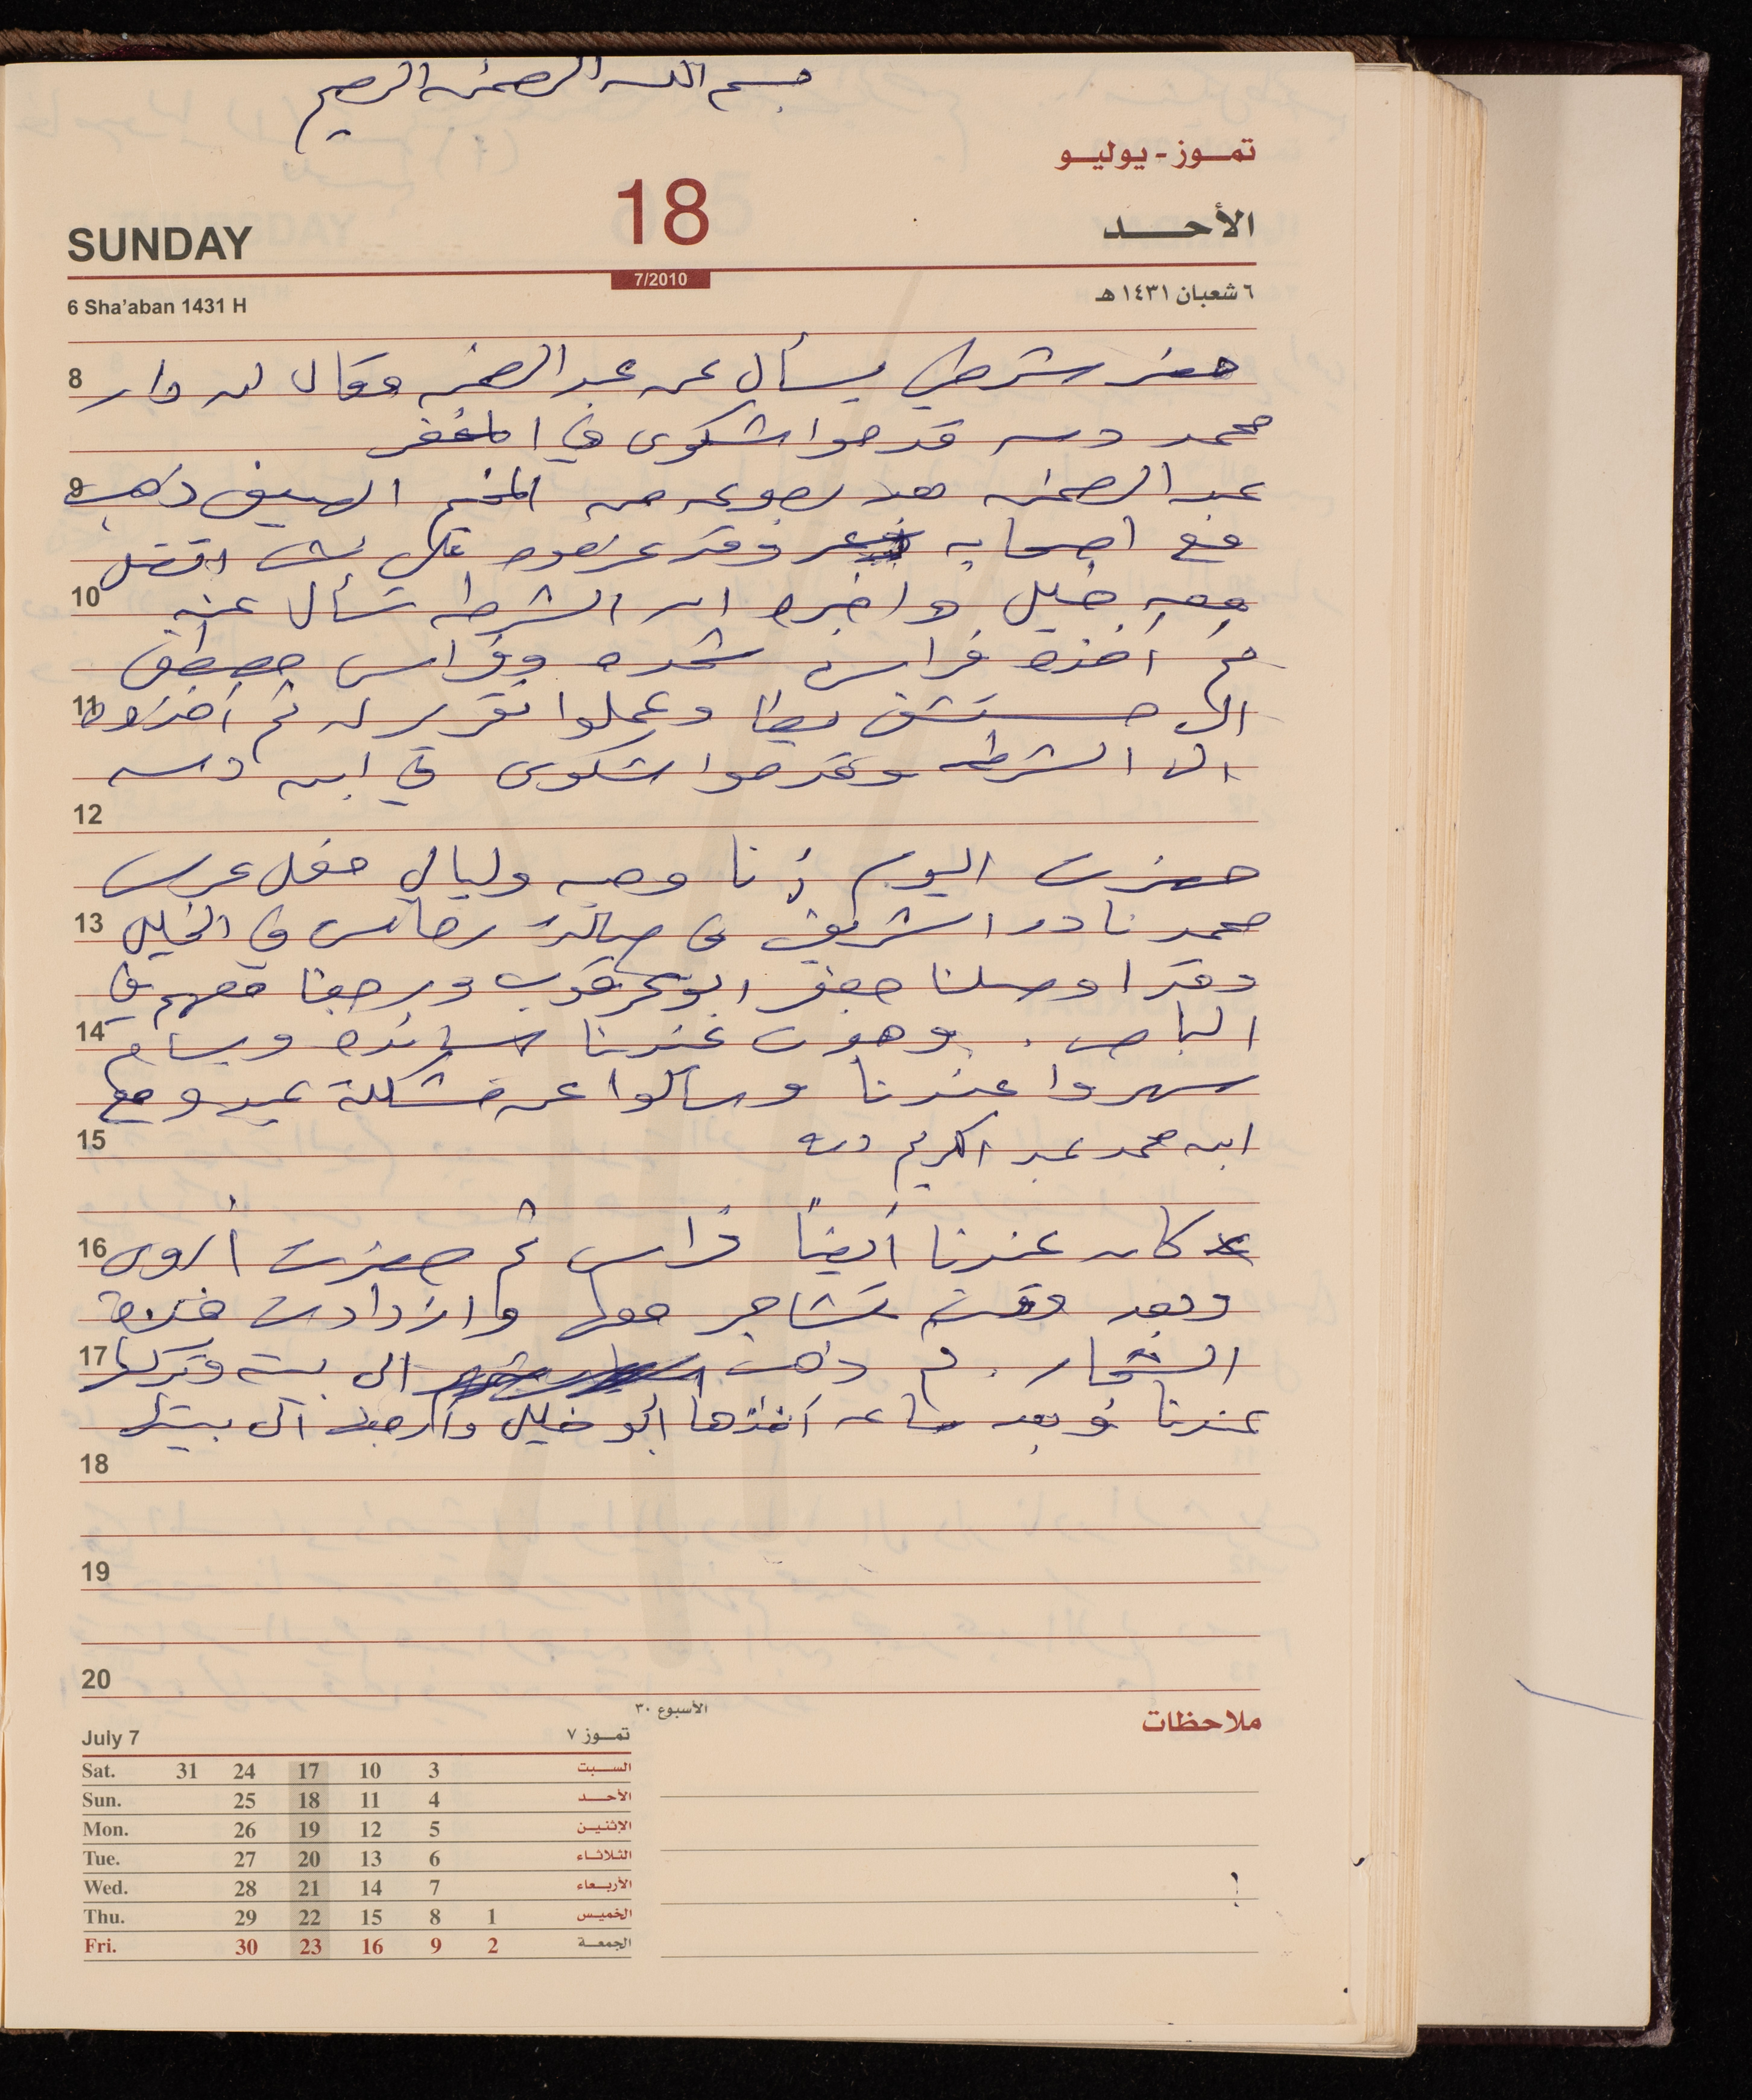 بسم الله الرحمن الرحيم
تمـوز - يوليـو
18
SUNDAY
الأحـــد
7/2010
6 Sha'aban 1431 H
٦ شعبان ١٤٣١ هـ
8
حضر شرطي يسأل عن عبد الرحمن وقال له دار
محمد قدموا شكوى في المخفر
9
عبد الرحمن بعد رجوعه من المخيم الصيفي ذهب
مع اصحابه وقد عرضوه على
10
معه خليل واخبره ان الشرطه تسأل عنه
ثم أخذه فراس شحده وفراس مصطفى
11
الى مستشفى يطا وعملوا تقرير له ثم أخذوه
الى الشرطه وقدموا شكوى في ابن
12
حضرت اليوم أنا وميه وليالي حفل عرس
13
محمد نادر الشريف في صالة في الخليل
وقد اوصلنا جعفر ورجعنا معهم في
14
الباص . وهون عندنا وبسام
سهروا عندنا وسألوا عن مشكلة مع
15
ابن محمد عبد الكريم
16
كان عندنا أيضاً فراس ثم حضرت أروى
وبعد وقت تشاجر معها وازدادت حدة
17
الشجار . ثم ذهب الى بيته وتركها
عندنا وبعد ساعه أخذها أبو خليل وأرجعها الى بيتها
18
19
20
الأسبوع ٣٠
ملاحظات
July 7
تمـوز ٧
Sat. 31 24 17 10 3 السبت
Sun. 25 18 11 4 الأحـد
Mon. 26 19 12 5 الإثنيـن
Tue. 27 20 13 6 الثلاثـاء
Wed. 28 21 14 7 الأربـعاء
Thu. 29 22 15 8 1 الخميس
Fri. 30 23 16 9 2 الجمعـة